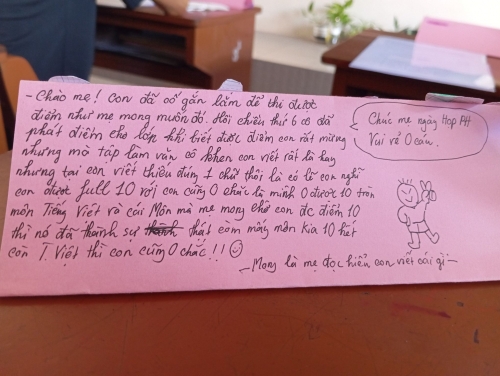 - Chào mẹ! Con đã cố gắn lắm để thi được
điểm như mẹ mong muốn đó. Hồi chiều thứ 6 cô đã
phát điểm cho lớp khi biết được điểm con rất mừng
nhưng mà tập làm văn cô khen con viết rất là hay
nhưng tại con viết thiếu đúng 1 chữ thôi là có lẽ con nghĩ
con được full 10 rồi con cũng 0 chắc là mình 0 được 10 tròn
môn Tiếng Việt và cái Môn mà mẹ mong chờ con đc điểm 10
thì nó đã thành sự thành thật com mấy môn kia 10 hết
còn T. Việt thì con cũng 0 chắc!!
- Mong là mẹ đọc hiểu con viết cái gì -
Chúc mẹ ngày Họp PH
Vui vẻ 0 cau.